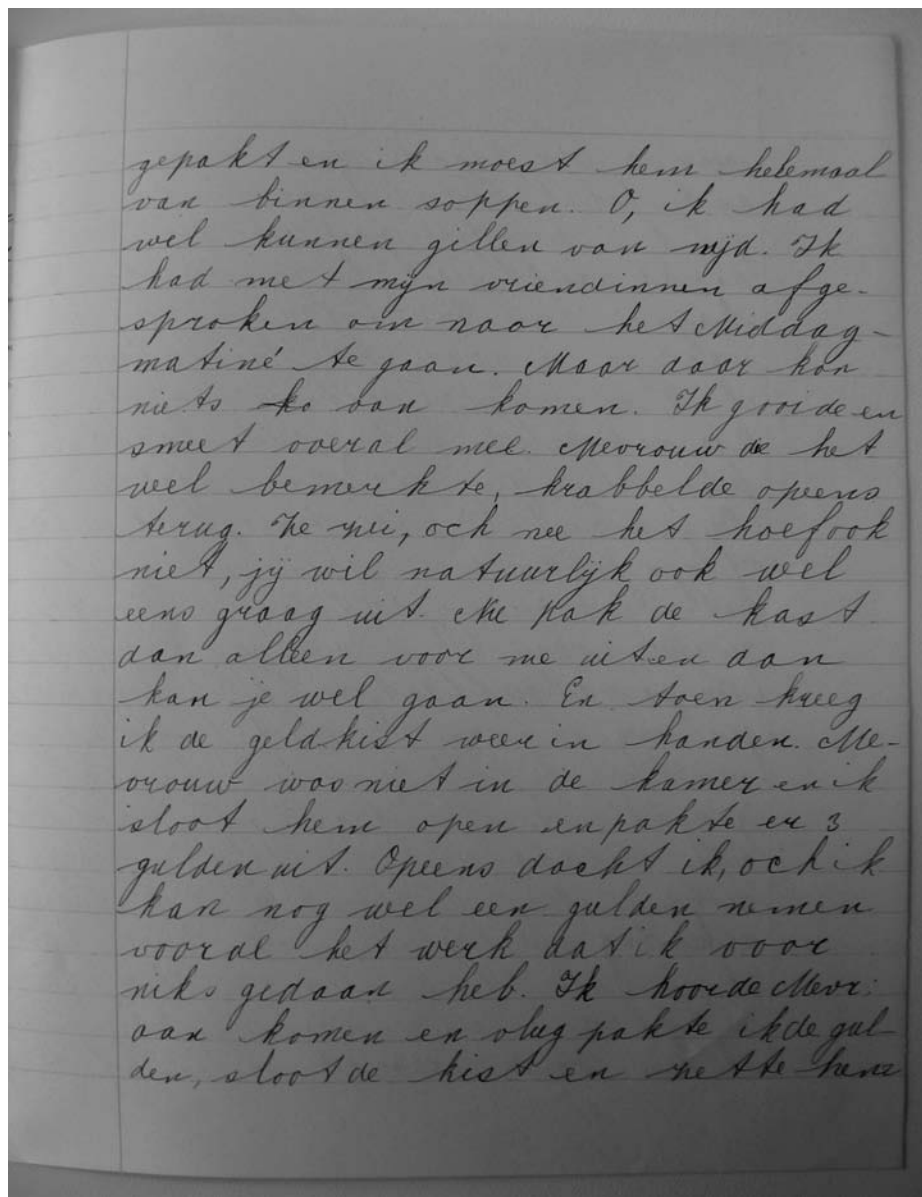 gepakt en ik moest hem helemaal
van binnen soppen. O, ik had
wel kunnen gillen van nijd. Ik
had met mijn vriendinnen afge-
sproken om naar het Middag-
matiné te gaan. Maar daar kon
niets ko van komen. Ik gooide en
smeet overal mee. Mevrouw de het
wel bemerkte, krabbelde opeens
terug. Ze zei, och nee het hoef ook
niet, jij wil natuurlijk ook wel
eens graag uit. Pak de kast
dan alleen voor me uit en dan
kan je wel gaan. En toen kreeg
ik de geldkist weer in handen. Me-
vrouw was niet in de kamer en ik
sloot hem open en pakte er 3
gulden uit. Opeens dacht ik, och ik
kan nog wel een gulden nemen
voor al het werk dat ik voor
niks gedaan heb. Ik hoorde Mevr.
aan komen en vlug pakte ik de gul
den, sloot de kist en zette hem